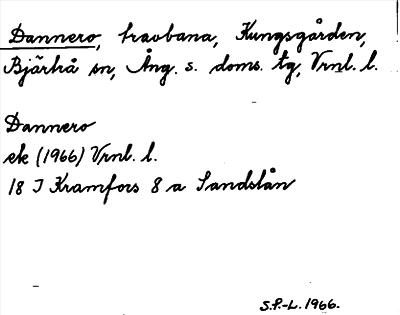 Dannero, travbana, Kungsgården,
Bjärtrå sn, Ång. s. doms. tg, Vrnl. l.
Dannero
ek (1966) Vrnl. l.
18 I Kramfors 8 a Sandslån
S.P.-L. 1966.